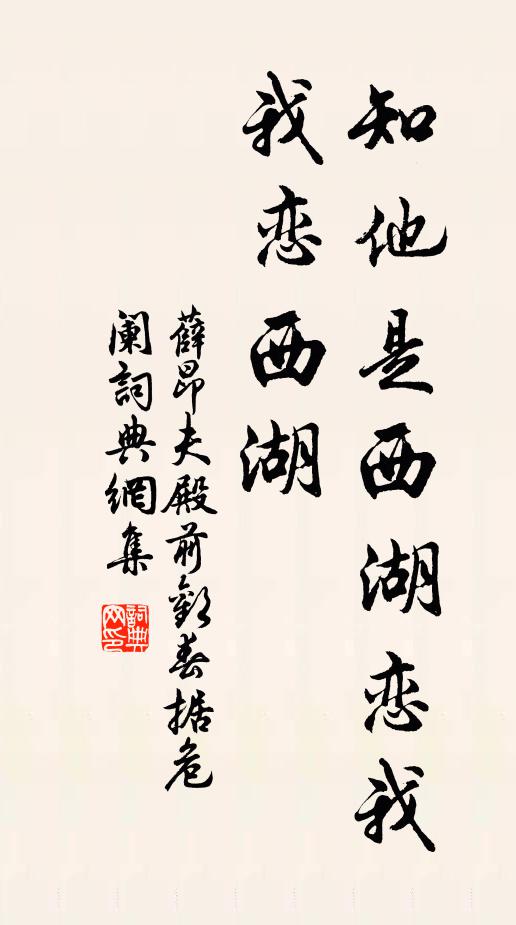 知他是西湖恋我
我恋西湖
薛昂夫殿前歡春据危
阑詞典網集
詞典
网印